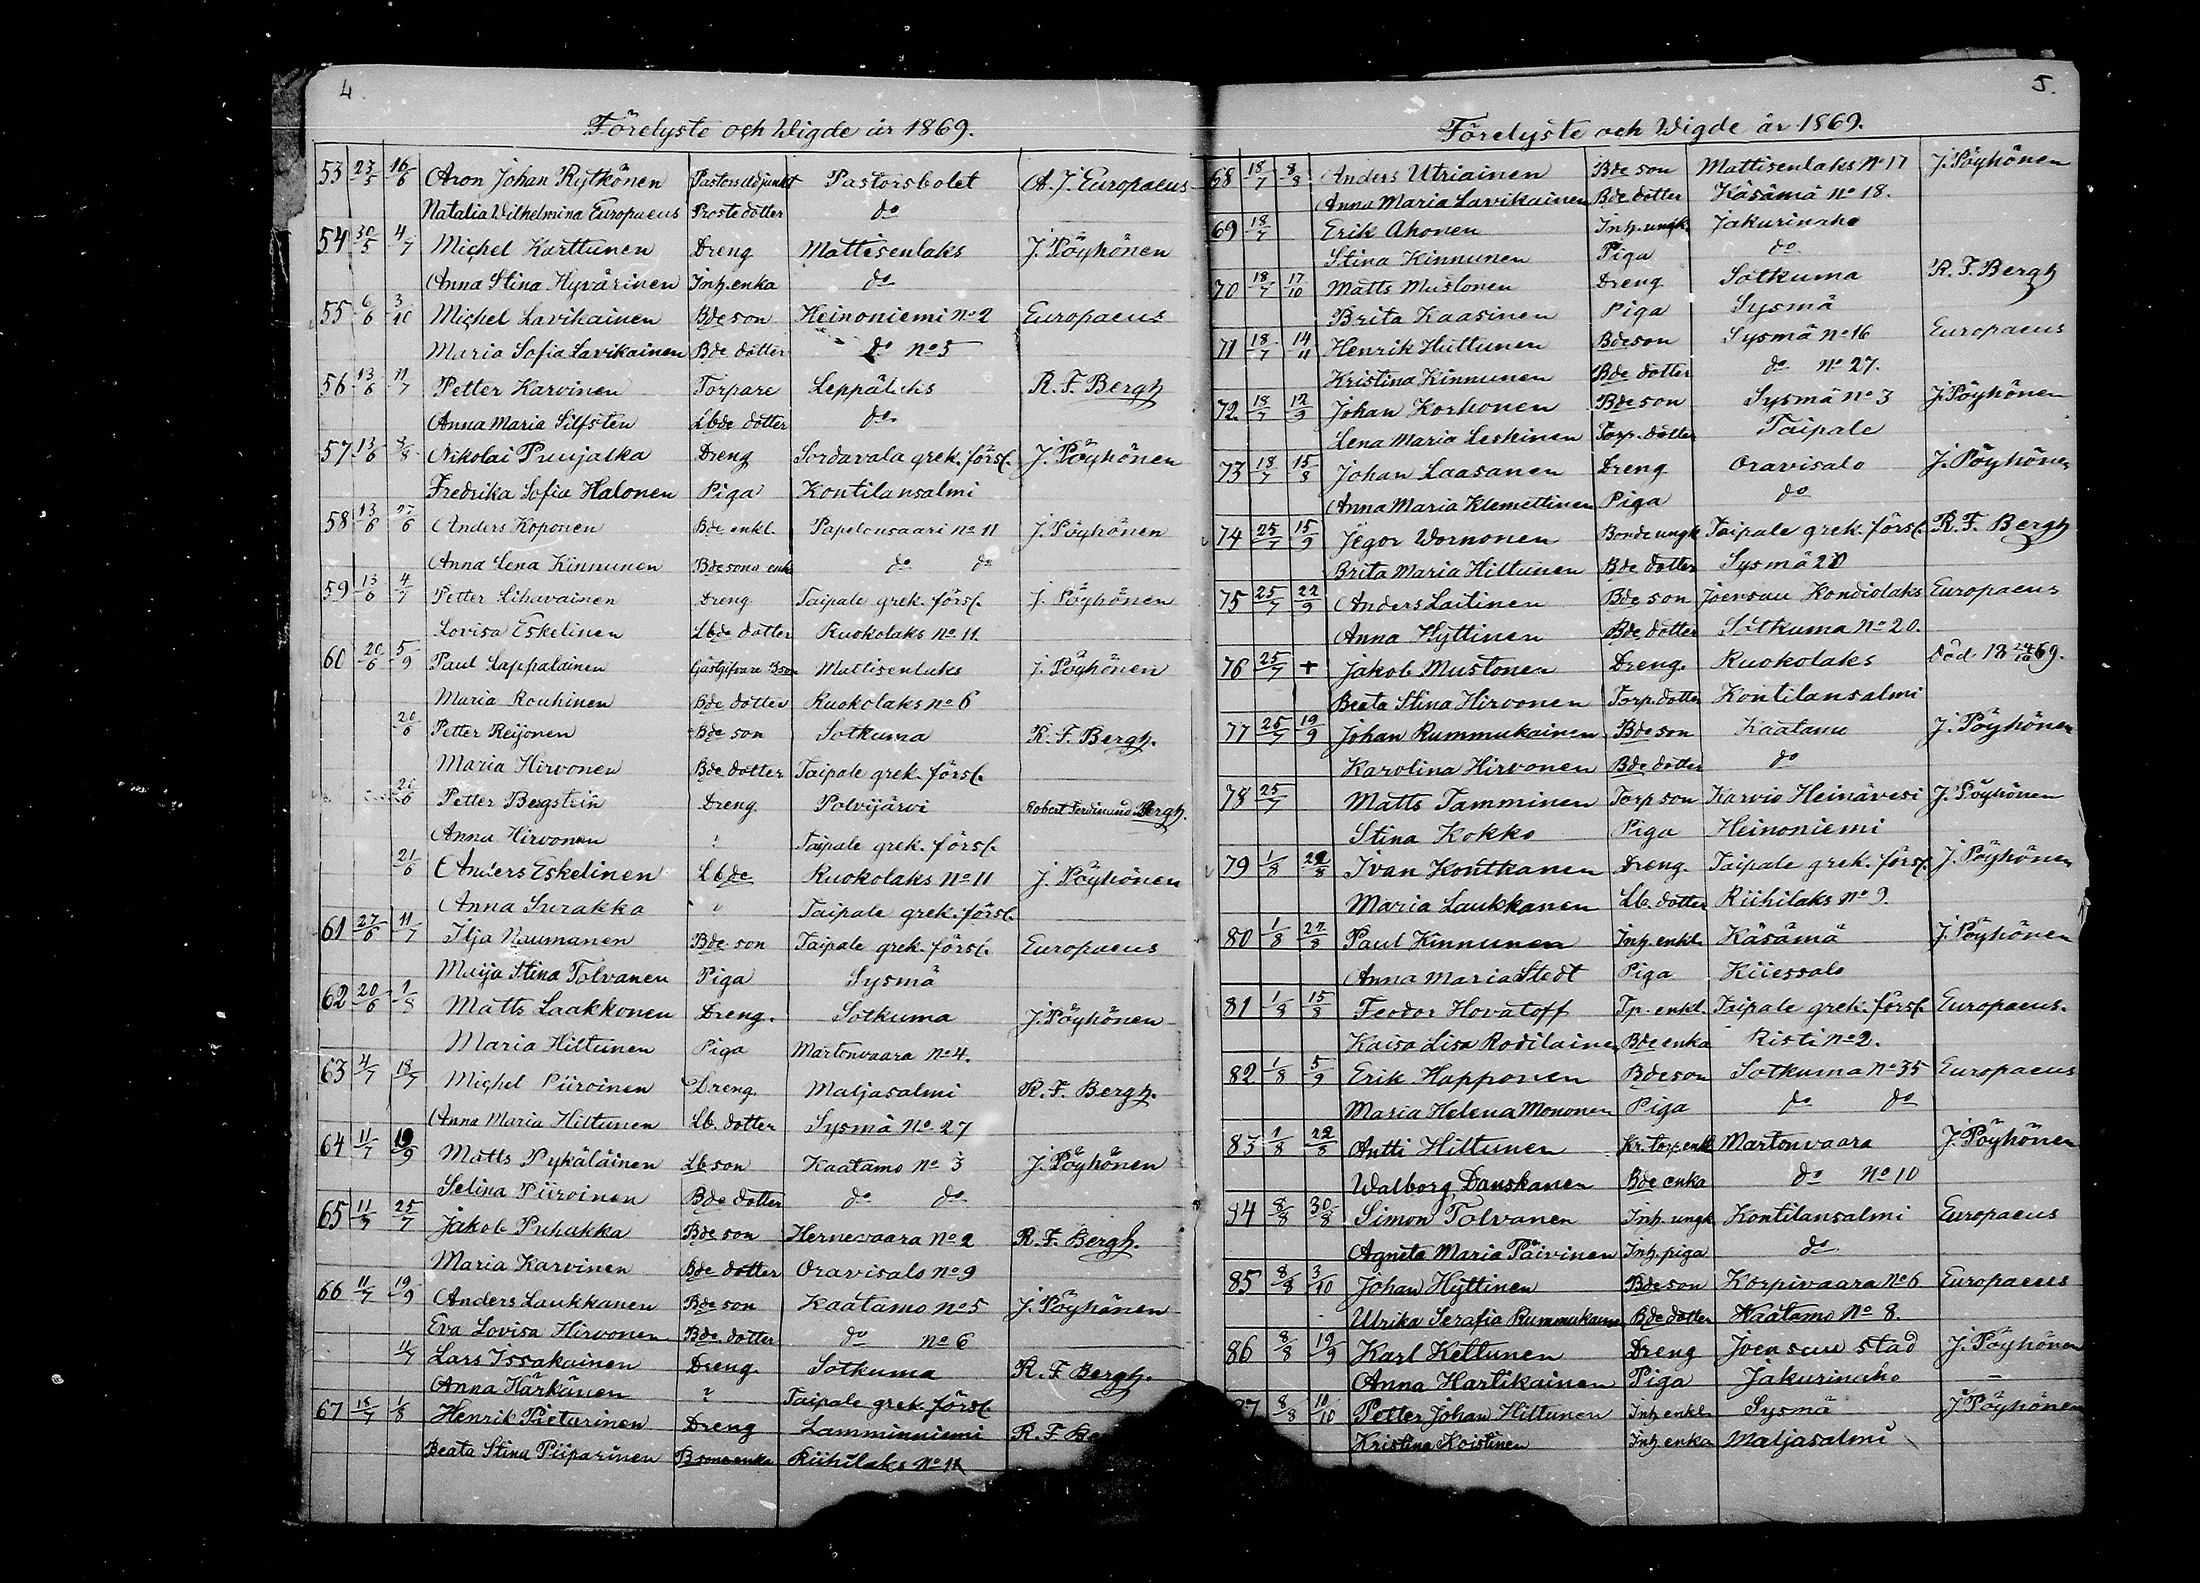 4
Förelyste och Vigde år 1869.
53 27/5 16/6 Aron Johan Rytkönen Pastorsadjunkt Pastorsbolet A. J. Europaeus
Natalia Wilhelmina Europaeus Prostedotter do
54 30/5 4/7 Michel Karttunen Dreng Mattisenlaks J. Pöyhönen
Anna Stina Hyvärinen Inh. enka do
55 6/6 3/10 Michel Lavikainen Bde son Heinoniemi No 2 Europaeus
Maria Sofia Lavikainen Bde dotter do No 5
56 13/6 11/7 Petter Karvinen Torpare Leppälaks R. F. Bergh
Anna Maria Silfsten Lbde dotter do
57 13/6 8/8 Nikolai Puujalka Dreng Sordavala grek. förs. J. Pöyhönen
Fredrika Sofia Halonen Piga Kontilansalmi
58 13/6 27/6 Anders Koponen Bde enkl. Papelonsaari No 11 J. Pöyhönen
Anna Lena Kinnunen Bdesons enka do do
59 13/6 4/7 Petter Lihavainen Dreng Taipale grek. förs. J. Pöyhönen
Lovisa Eskelinen Lbde dotter Ruokolaks No 11
60 20/6 5/9 Paul Lappalainen Gästgifvare Bson Mattisenlaks J. Pöyhönen
Maria Rouhinen Bde dotter Ruokolaks No 6
20/6 Petter Reijonen Bde son Sotkuma R. F. Bergh.
Maria Hirvonen Bde dotter Taipale grek. förs.
Petter Bergstein Dreng Polvijärvi Robert Ferdinand Bergh.
Anna Hirvonen ? Taipale grek. förs.
21/6 Anders Eskelinen Lbde Ruokolaks No 11 J. Pöyhönen
Anna Surakka Taipale grek. förs.
61 27/6 11/7 Ilja Naumanen Bde son Taipale grek. förs. Europaeus
Maija Stina Tolvanen Piga Sysmä
62 20/6 1/8 Matts Laakkonen Dreng. Sotkuma J. Pöyhönen
Maria Hiltunen Piga Martonvaara No 4.
63 4/7 18/7 Michel Piiroinen Dreng Maljasalmi R. F. Bergh.
Anna Maria Hiltunen Lb. dotter Sysmä No 27
64 11/7 19/9 Matts Pykäläinen Lb son Kaatamo No 3 J. Pöyhönen
Selina Piiroinen Bde dotter do do
65 11/7 25/7 Jakob Puhakka Bde son Hernevaara No 2 R. F. Bergh.
Maria Karvinen Bde dotter Oravisalo No 9
66 11/7 19/9 Anders Laukkanen Bde son Kaatamo No 5 J. Pöyhönen
Eva Lovisa Hirvonen Bde dotter do No 6
11/7 Lars Issakainen Dreng Sotkuma R. F. Bergh.
Anna Härkänen ? Taipale grek. förs.
67 18/7 1/8 Henrik Pietarinen Dreng Lamminniemi R. F. Be
Beata Stina Piiparinen B sons enka Riihilaks No 11
5.
Förelyste och Vigde år 1869.
68 18/7 8/8 Anders Utriainen Bde son Mattisenlaks No 17 J. Pöyhönen
Anna Maria Lavikainen Bde dotter Käsämä No 18.
69 18/7 Erik Ahonen Inh. ungk. Jakurinaho
Stina Kinnunen Piga do
70 18/7 17/10 Matts Mustonen Dreng Sotkuma R. F. Bergh
Brita Kaasinen Piga Sysmä
71 18/7 14/11 Henrik Huttunen Bde son Sysmä No 16 Europaeus
Kristina Kinnunen Bde dotter do No 27.
72 18/7 12/9 Johan Korhonen Bde son Sysmä No 3 J. Pöyhönen
Lena Maria Leskinen Torp. dotter Taipale
73 18/7 15/8 Johan Laasanen Dreng Oravisalo J. Pöyhönen
Anna Maria Klemettinen Piga do
74 25/7 15/9 Jegor Vornonen Bonde ungk Taipale grek. förs. R. F. Bergh
Brita Maria Hiltunen Bde dotter Sysmä
75 25/7 22/9 Anders Laitinen Bde son Joensuu Kondiolaks Europaeus
Anna Hyttinen Bde dotter Sotkuma No 20.
76 25/7 + Jakob Mustonen Dreng. Ruokolaks Död 18 24/10 69.
Beata Stina Hirvonen Torp. dotter Kontilansalmi
77 25/7 19/9 Johan Rummukainen Bde son Kaatamo J. Pöyhönen
Karolina Hirvonen Bde dotter do
78 25/7 Matts Tamminen Torp son Karvio Heinävesi J. Pöyhönen
Stina Kokko Piga Heinoniemi
79 1/8 22/8 Ivan Kontkanen Dreng. Taipale grek. förs. J. Pöyhönen
Maria Laukkanen Lb. dotter Riihilaks No 9
80 1/8 22/8 Paul Kinnunen Inh. enkl. Käsämä J. Pöyhönen
Anna Maria Stedt Piga Kiiessalo
81 1/8 15/8 Feodor Hovatoff Tp. enkl. Taipale grek. förs. Europaeus.
Kaisa Lisa Rodilainen Bde enka Risti No 2.
82 1/8 5/9 Erik Happonen Bde son Sotkuma No 35 Europaeus
Maria Helena Mononen Piga do do
83 1/8 22/8 Antti Hiltunen Kr. torp. enkl Martonvaara J. Pöyhönen
Walborg Danskanen Bde enka do No 10
84 8/8 30/8 Simon Tolvanen Inh. ungk Kontilansalmi Europaeus
Agneta Maria Päivinen Inh. piga do
85 8/8 3/10 Johan Hyttinen Bde son Korpivaara No 6 Europaeus
Ulrika Serafia Rummukainen Bde dotter Kaatamo No 8.
86 8/8 19/9 Karl Kettunen Dreng Joensuu stad J. Pöyhönen
Anna Hartikainen Piga Jakurinaho
87 8/8 10/10 Petter Johan Hiltunen Inh. enkl. Sysmä J. Pöyhönen
Kristina Koistinen Inh. enka Maljasalmi